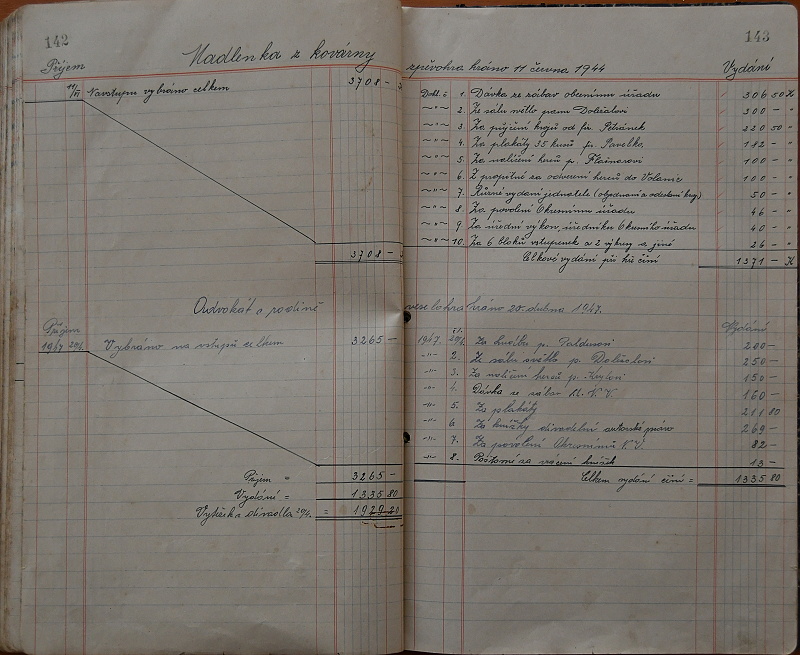 142
Madlenka z kovárny
Příjem
11/VI Na vstupu vybráno celkem 3708 –
3708 –
Advokát a rodině
Příjem
1947 20/4. Vybráno na vstupu celkem 3265 –
Příjem = 3265 –
Vydání = 1335 80
Výtěžek z divadla 20/4. = 1929 20
143
zpěvohra hráno 11 června 1944 Vydání
Dokl. č. 1. Dávka ze zábav obecnímu úřadu 306 50 K
–"– 2. Za sál a světlo panu Doležalovi 300 – "
–"– 3. Za půjčení krojů od fir. Petránek 220 50 "
–"– 4. Za plakáty 35 kusů fr. Pavelko 182 – "
–"– 5. Za nalíčení herců p. 100 – "
–"– 6. Z propitné za odvezení herců do Volanic 100 – "
–"– 7. Různé vydání jednatele (objednání a odeslání kroj.) 50 – "
–"– 8. Za povolení Okresnímu úřadu 46 – "
–"– 9. Za úřední výkon, úředníku Okresního úřadu 40 – "
–"– 10. Za 6 bloků vstupenek a 2 výkresy a jiné 26 – "
Celkové vydání při hře činí 1371 – K
veselohra hráno 20. dubna 1947.
Vydání
1947. 20/4. Za hudbu p. 200 –
–"– 2. Za sál a světlo p. Doležalovi 250 –
–"– 3. Za nalíčení herců p. 150 –
–"– 4. Dávka ze zábav M. N. V. 160 –
–"– 5. Za plakáty 211 80
–"– 6. Za knížky divadelní autorské právo 269 –
–"– 7. Za povolení Okresnímu N. V. 82 –
–"– 8. Poštovné za vrácení knížek 13 –
Celkem vydání činí = 1335 80